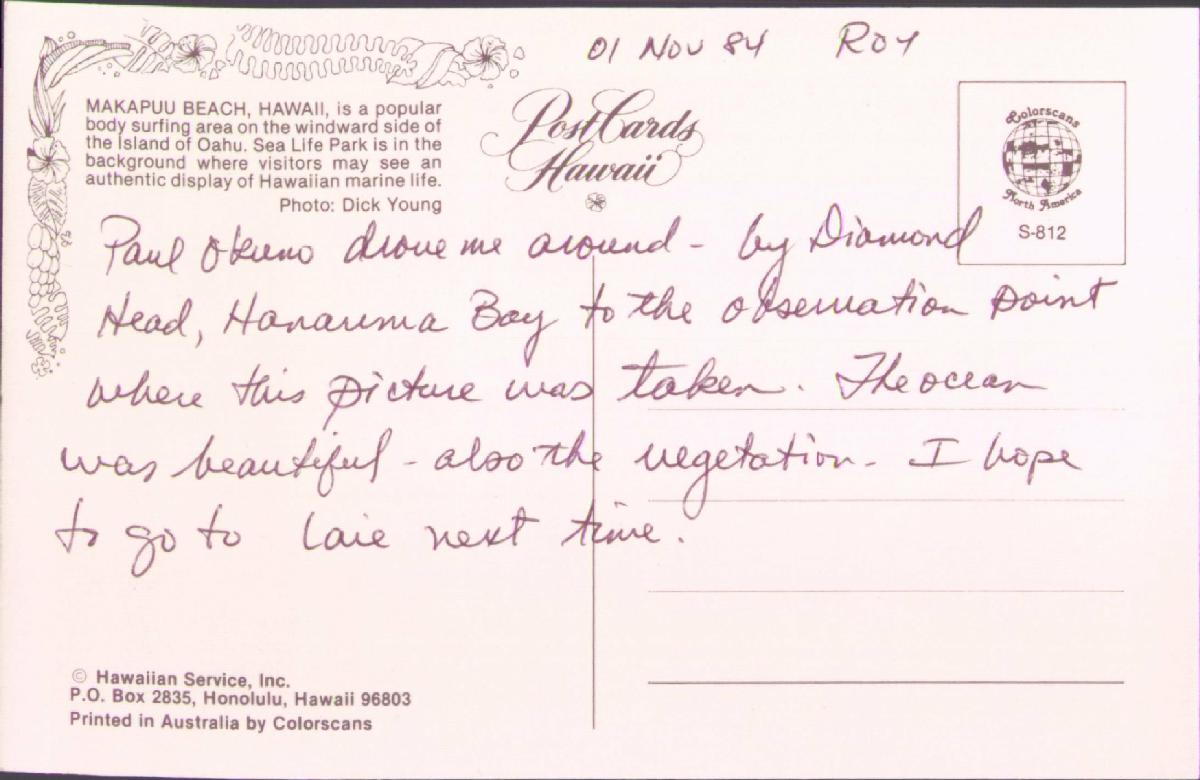 01 NOV 84 ROY
MAKAPUU BEACH, HAWAII, is a popular
body surfing area on the windward side of
the Island of Oahu. Sea Life Park is in the
background where visitors may see an
authentic display of Hawaiian marine life.
Photo: Dick Young
PostCards
Hawaii
Colorscans
North America
S-812
Paul Okuno drove me around - by Diamond
Head, Hanauma Bay to the observation point
where this picture was taken. The ocean
was beautiful - also the vegetation - I hope
to go to Laie next time.
© Hawaiian Service, Inc.
P.O. Box 2835, Honolulu, Hawaii 96803
Printed in Australia by Colorscans